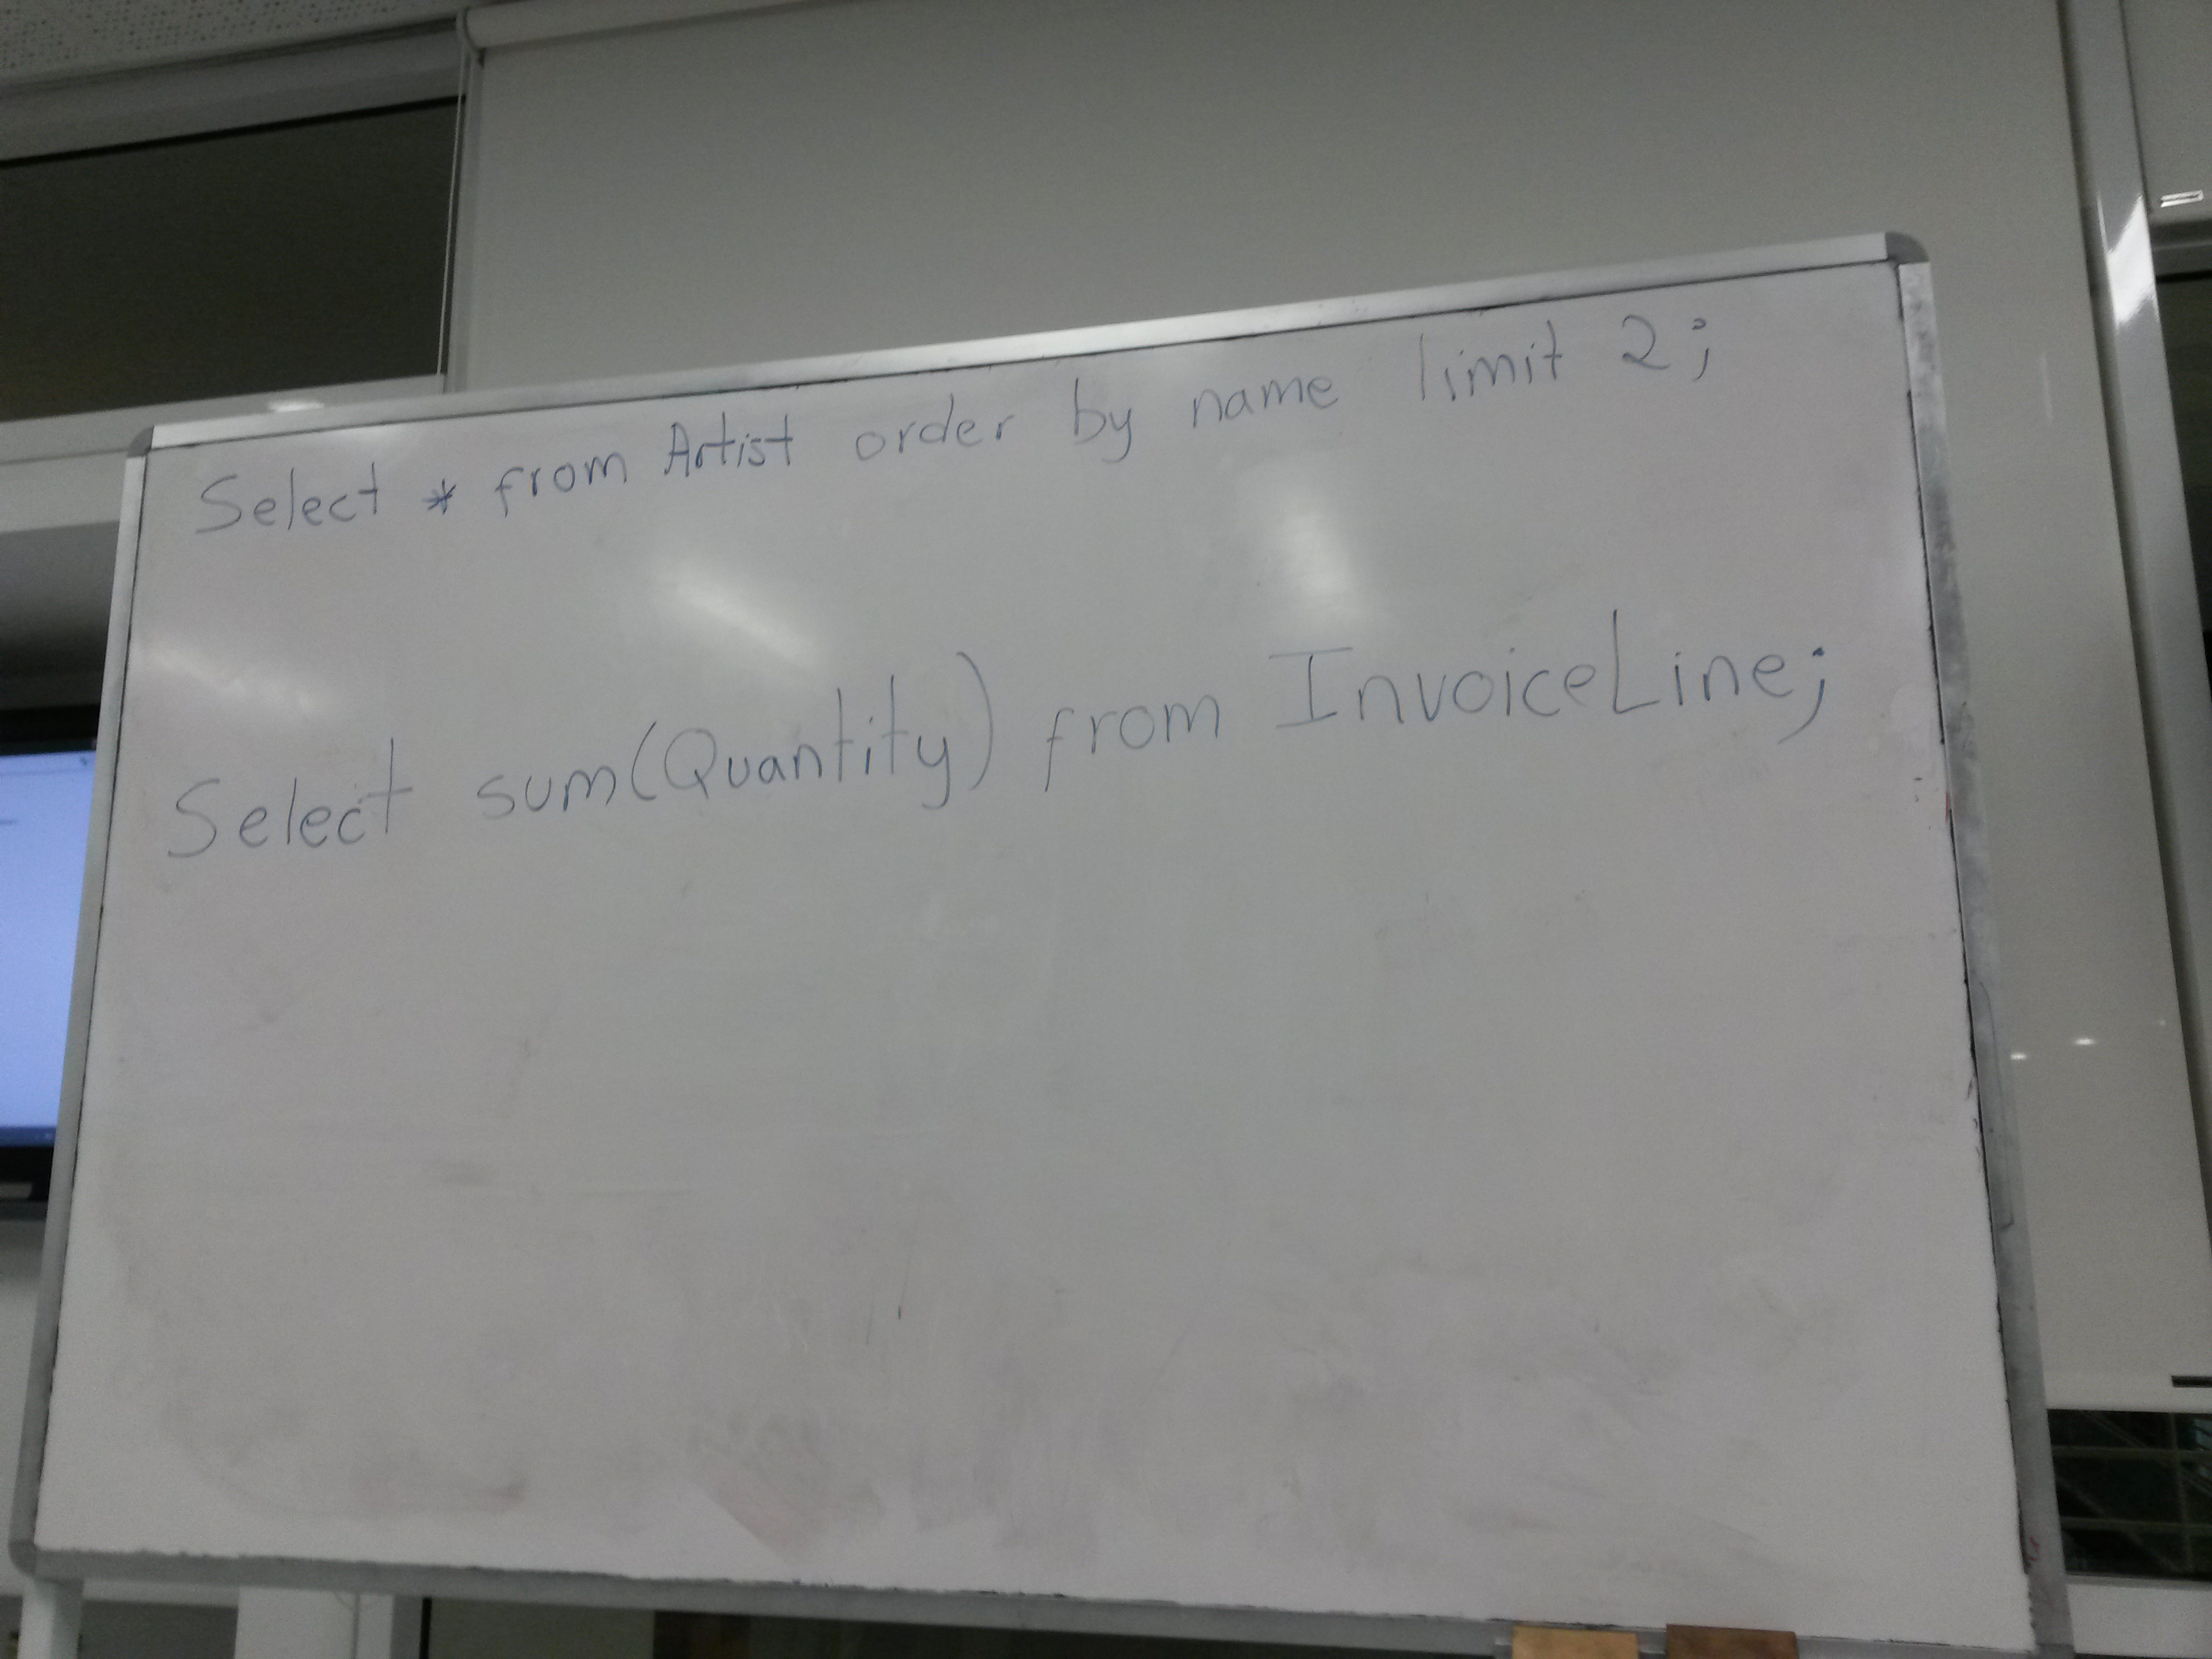 Select * from Artist order by name limit 2;
Select sum(Quantity) from InvoiceLine;